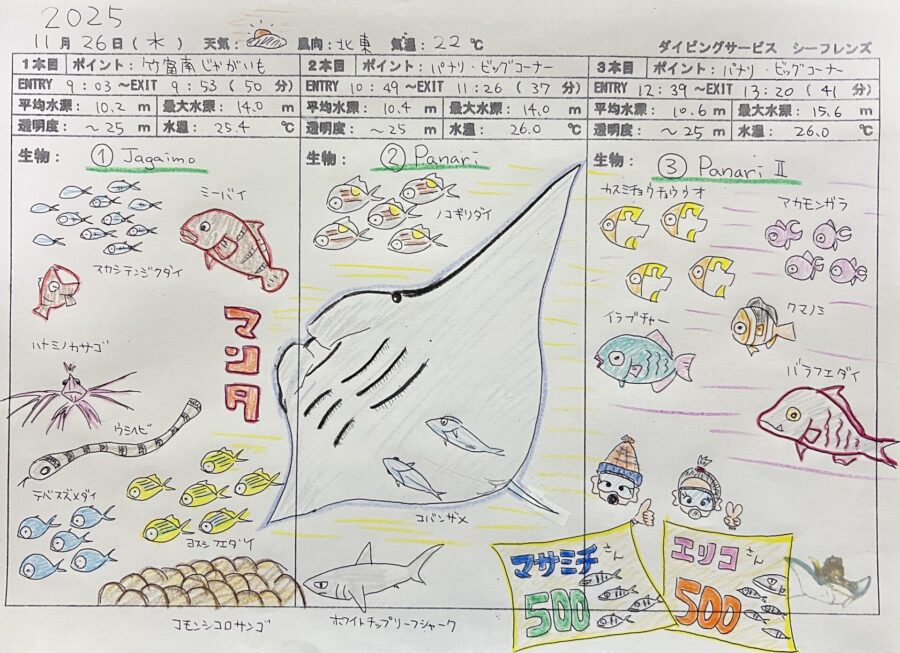 2025
11月 26日 (木) 天気： 風向：北東 気温：22℃ ダイビングサービス シーフレンズ
1本目 ポイント：竹富南じゃがいも
ENTRY 9：03 ～EXIT 9：53 (50 分)
平均水深： 10.2 m 最大水深： 14.0 m
透明度： ～25 m 水温： 25.4 ℃
生物： ① Jagaimo
ミーバイ
スカシテンジクダイ
ハナミノカサゴ
ウミヘビ
デバスズメダイ
ヨスジフエダイ
コモンシコロサンゴ
マンタ
2本目 ポイント：パナリ・ビッグコーナー
ENTRY 10：49 ～EXIT 11：26 (37 分)
平均水深： 10.4 m 最大水深： 14.0 m
透明度： ～25 m 水温： 26.0 ℃
生物： ② Panari
ノコギリダイ
コバンザメ
ホワイトチップリーフシャーク
3本目 ポイント：パナリ・ビッグコーナー
ENTRY 12：39 ～EXIT 13：20 (41 分)
平均水深： 10.6 m 最大水深： 15.6 m
透明度： ～25 m 水温： 26.0 ℃
生物： ③ Panari Ⅱ
カスミチョウチョウウオ
アカモンガラ
クマノミ
イラブチャー
バラフエダイ
マサミチさん
500
エリコさん
500